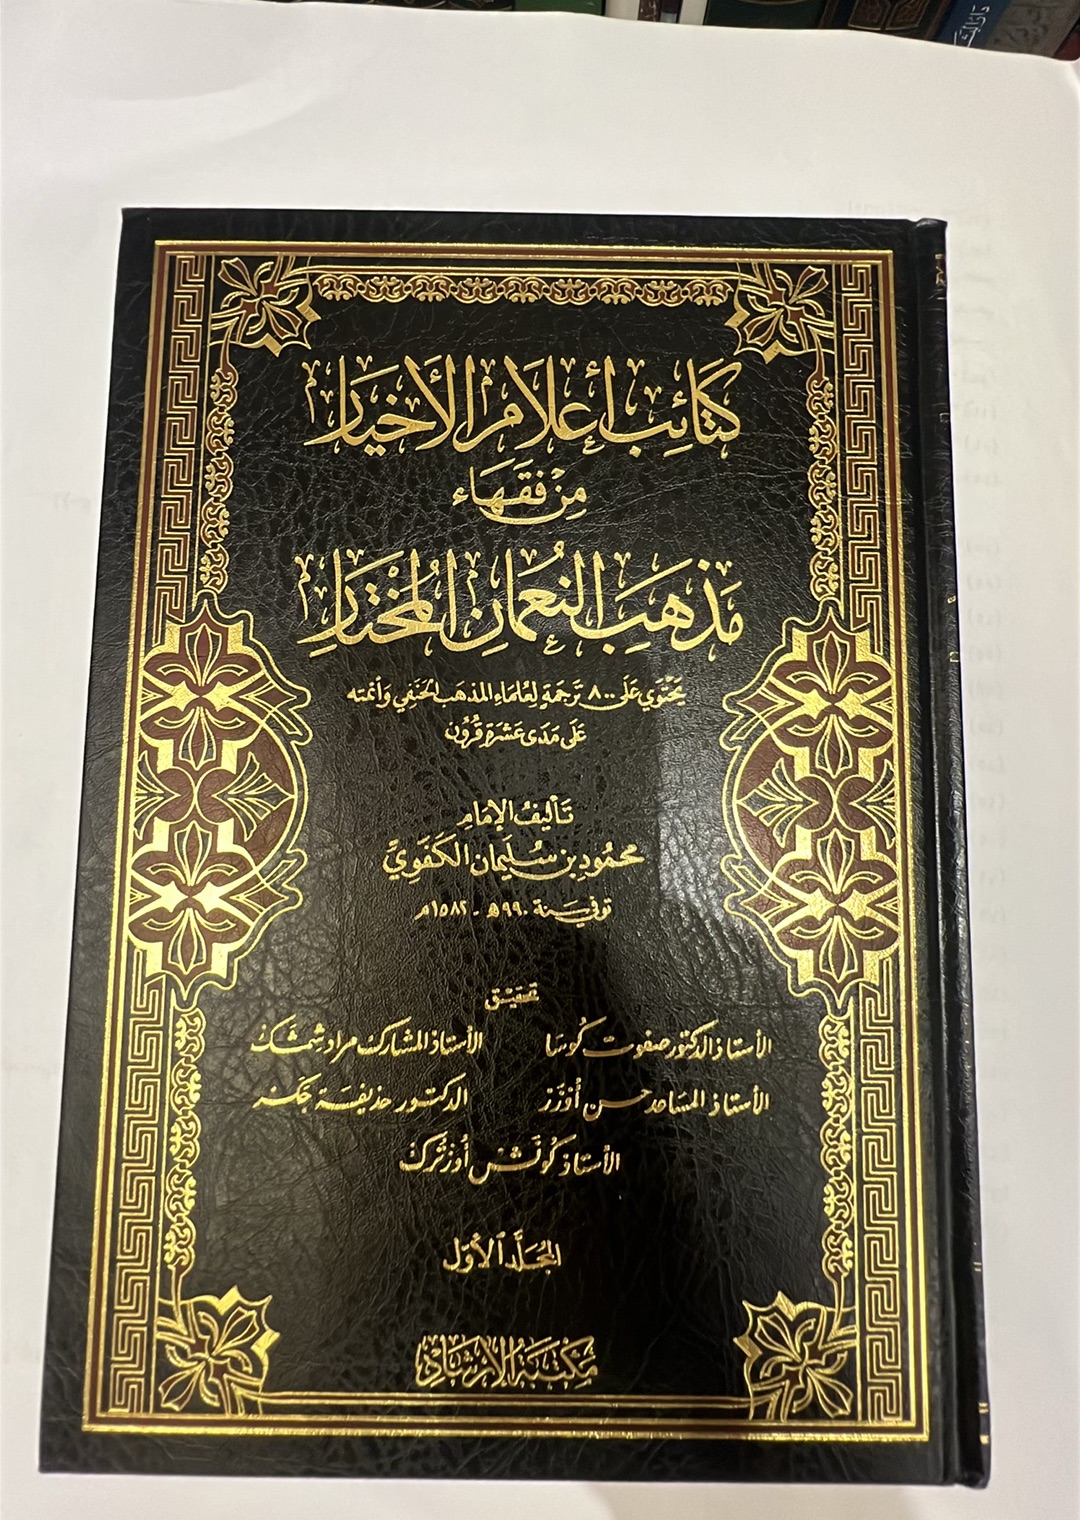 كَتَائِبُ أَعْلَامِ الأَخْيَارِ
مِنْ فُقَهَاءِ
مَذْهَبِ النُّعْمَانِ المُخْتَارِ
يَحْتَوِي عَلَى ٨٠٠ تَرْجَمَةٍ لِعُلَمَاءِ المَذْهَبِ الحَنَفِي وَأَئمته
عَلَى مَدَى عَشَرَةِ قُرُون
تَأْلِيفُ الإِمَامِ
مَحْمُودِ بْنِ سُلَيْمَان الكَفَوِيِّ
توفي سنة ٩٩٠ هـ - ١٥٨٢ م
تحقيق
الأستاذ الدكتور صفوت كُوسَا الأستاذ المشارك مراد شِمْشَك
الأستاذ المساعد حسن أُوزَر الدكتور حذيفة جَكَر
الأستاذ كُونَش أُوزْتُرك
المُجَلَّد الأَوَّل
مَكْتَبَةُ الإِرْشَادِ